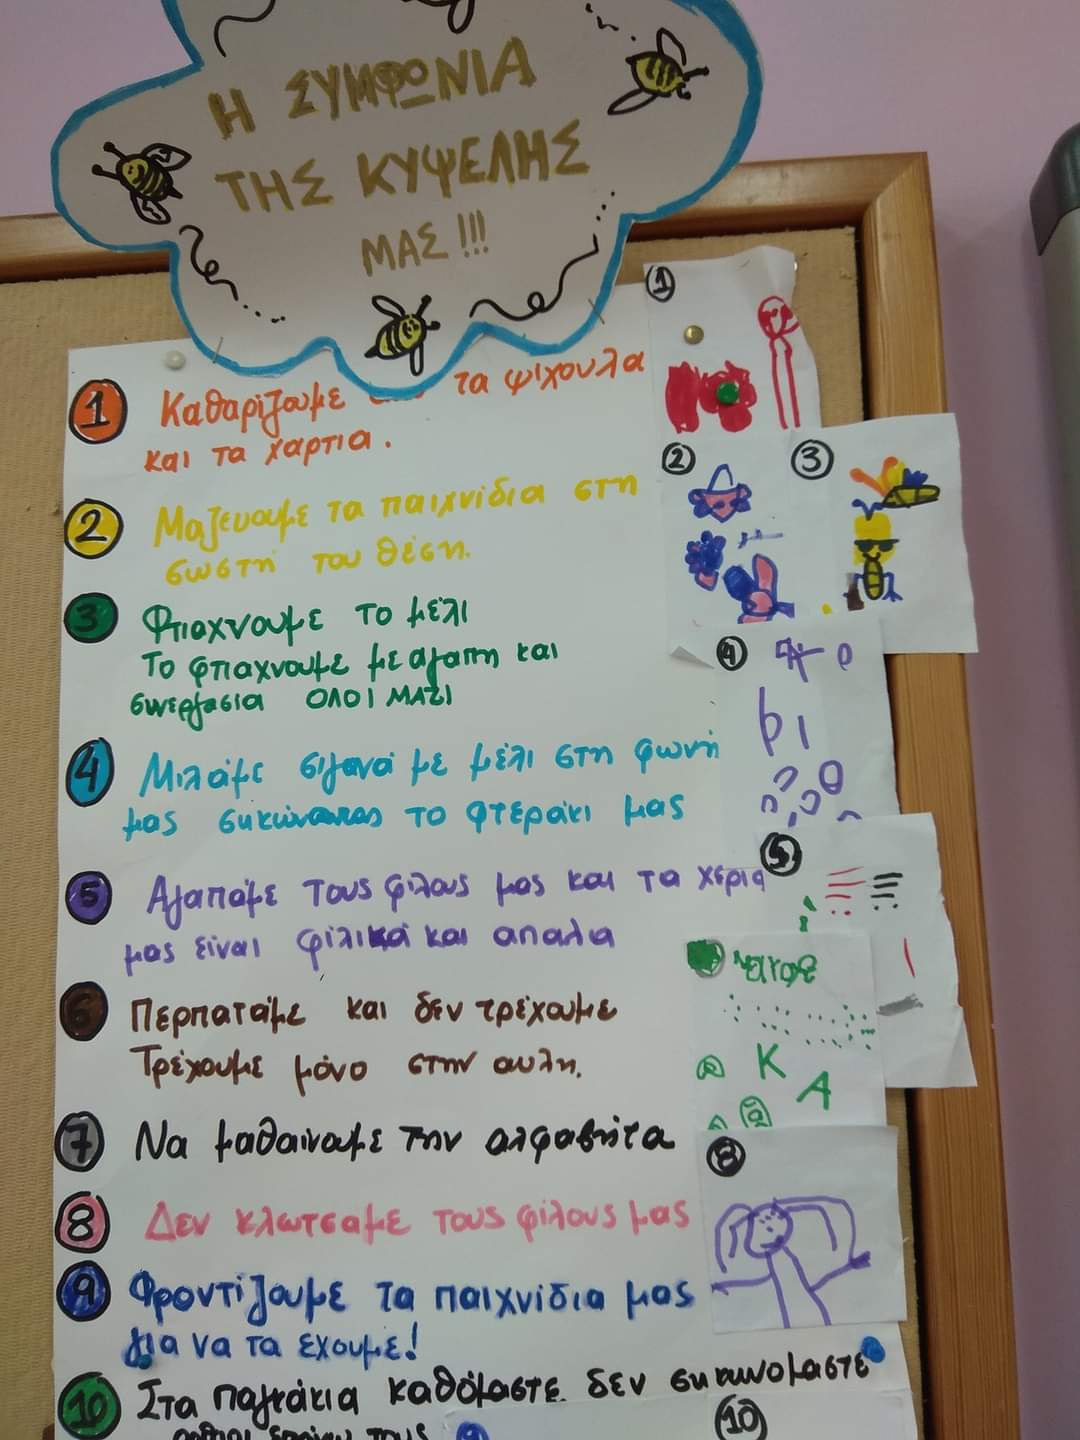 Η ΣΥΜΦΩΝΙΑ
ΤΗΣ ΚΥΨΕΛΗΣ
ΜΑΣ !!!
1 Καθαρίζουμε τα ψιχουλα
και τα χαρτια.
2 Μαζευουμε τα παιχνίδια στη
σωστή του θέση.
3 Φτιαχνουμε το μέλι
Το φτιαχνουμε με αγαπη και
συνεργασια ΟΛΟΙ ΜΑΖΙ
4 Μιλάμε σιγανά με μέλι στη φωνή
μας σηκώνοντας το φτεράκι μας
5 Αγαπάμε τους φιλους μας και τα χερια
μας είναι φιλικά και απαλα
6 Περπατάμε και δεν τρέχουμε
Τρέχουμε μόνο στην αυλη.
7 Να μαθαίνουμε την αλφαβήτα
8 Δεν κλωτσαμε τους φίλους μας
9 Φροντίζουμε τα παιχνίδια μας
για να τα εχουμε!
10 Στα παγκάκια καθόμαστε δεν σηκωνομαστε
τους
1
2
3
4
5
Κ
Α
8
9
10